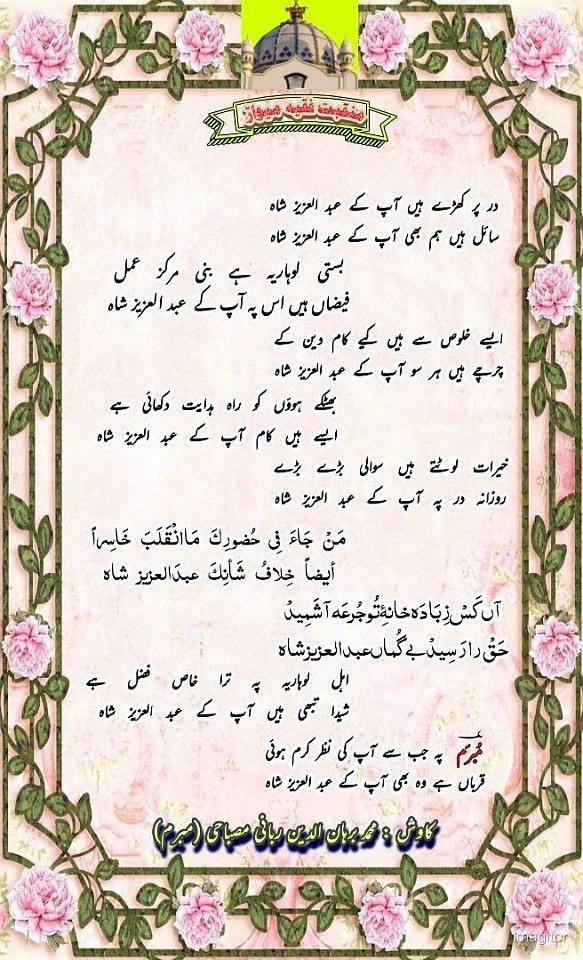 منقبت فقیہ میواڑ
در پر کھڑے ہیں آپ کے عبد العزیز شاہ
سائل ہیں ہم بھی آپ کے عبد العزیز شاہ
بستی لوہاریہ ہے بنی مرکز عمل
فیضاں ہیں اس پہ آپ کے عبد العزیز شاہ
ایسے خلوص سے ہیں کیے کام دین کے
چرچے ہیں ہر سو آپ کے عبد العزیز شاہ
بھٹکے ہوؤں کو راہ ہدایت دکھائی ہے
ایسے ہیں کام آپ کے عبد العزیز شاہ
خیرات لوٹتے ہیں سوالی بڑے بڑے
روزانہ در پہ آپ کے عبد العزیز شاہ
مَنْ جَاءَ فِی حُضورِكَ مَاانْقَلَبَ خَاسِراً
أیضاً خِلافُ شَأنِكَ عبدَالعزیز شاہ
آں کَسْ زِبَادَہ خانۂِ تُو جُرعَہ آشَمِیدْ
حَقْ را رَسِیدْ بے گُماں عبدالعزیز شاہ
اہل لوہاریہ پہ ترا خاص فضل ہے
شیدا تبھی ہیں آپ کے عبد العزیز شاہ
مُبرم پہ جب سے آپ کی نظر کرم ہوئی
قرباں ہے وہ بھی آپ کے عبد العزیز شاہ
کاوش : محمد برہان الدین ربانی مصباحی (مبرم)
Imagitor